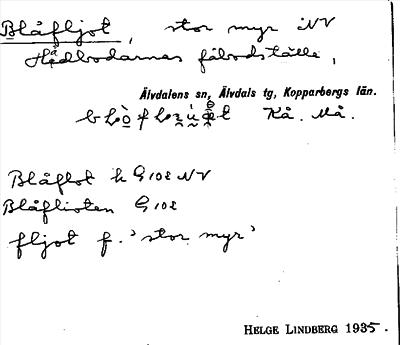 Blåfljot, stor myr i NV
Hådbodarnas fäbodställe,
Älvdalens sn, Älvdals tg, Kopparbergs län.
Kå. Må.
Blåflot k G 102 NV
Blåflioten G 102
fljot f. 'stor myr'
HELGE LINDBERG 1935.